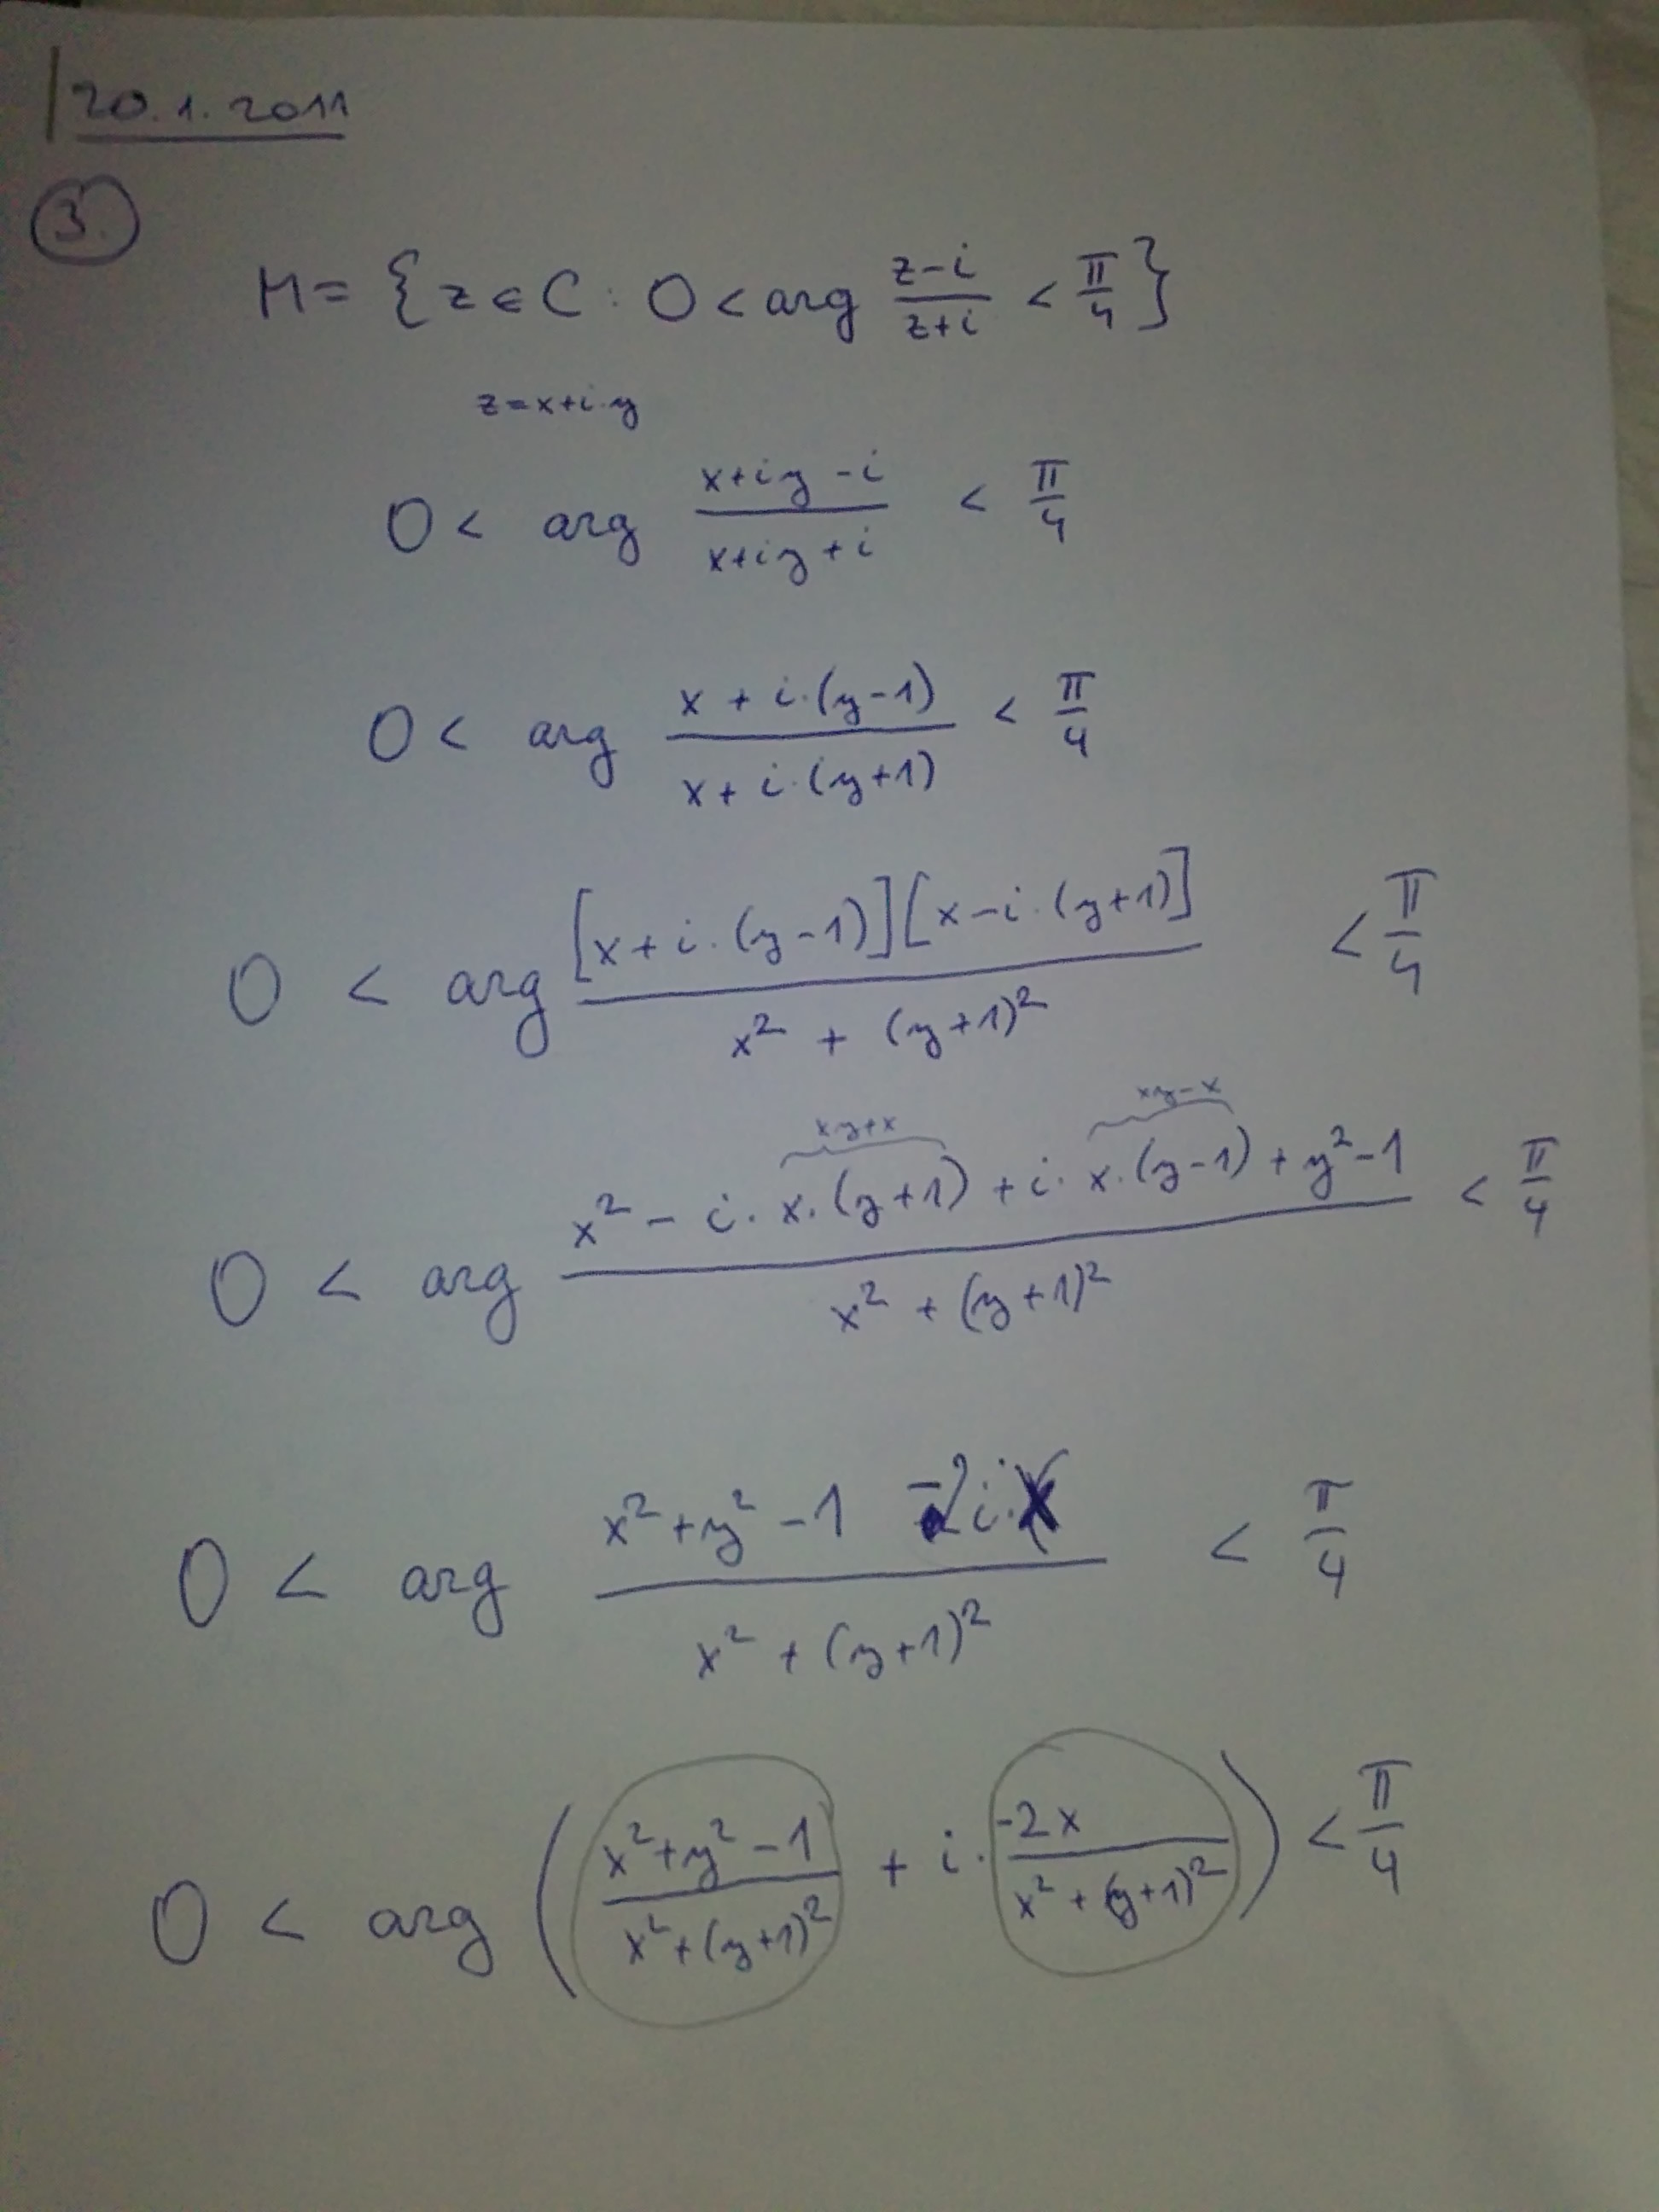 20.1.2011
3.
M = { z ∈ C : 0 < arg (z-i)/(z+i) < π/4 }
z = x+i·y
0 < arg (x+iy-i)/(x+iy+i) < π/4
0 < arg (x + i·(y-1))/(x + i·(y+1)) < π/4
0 < arg ([x + i·(y-1)][x - i·(y+1)])/(x² + (y+1)²) < π/4
xy+x xy-x
0 < arg (x² - i·x·(y+1) + i·x·(y-1) + y²-1)/(x² + (y+1)²) < π/4
0 < arg (x²+y²-1 -2i·x)/(x² + (y+1)²) < π/4
0 < arg ( (x²+y²-1)/(x²+(y+1)²) + i·(-2x)/(x²+(y+1)²) ) < π/4